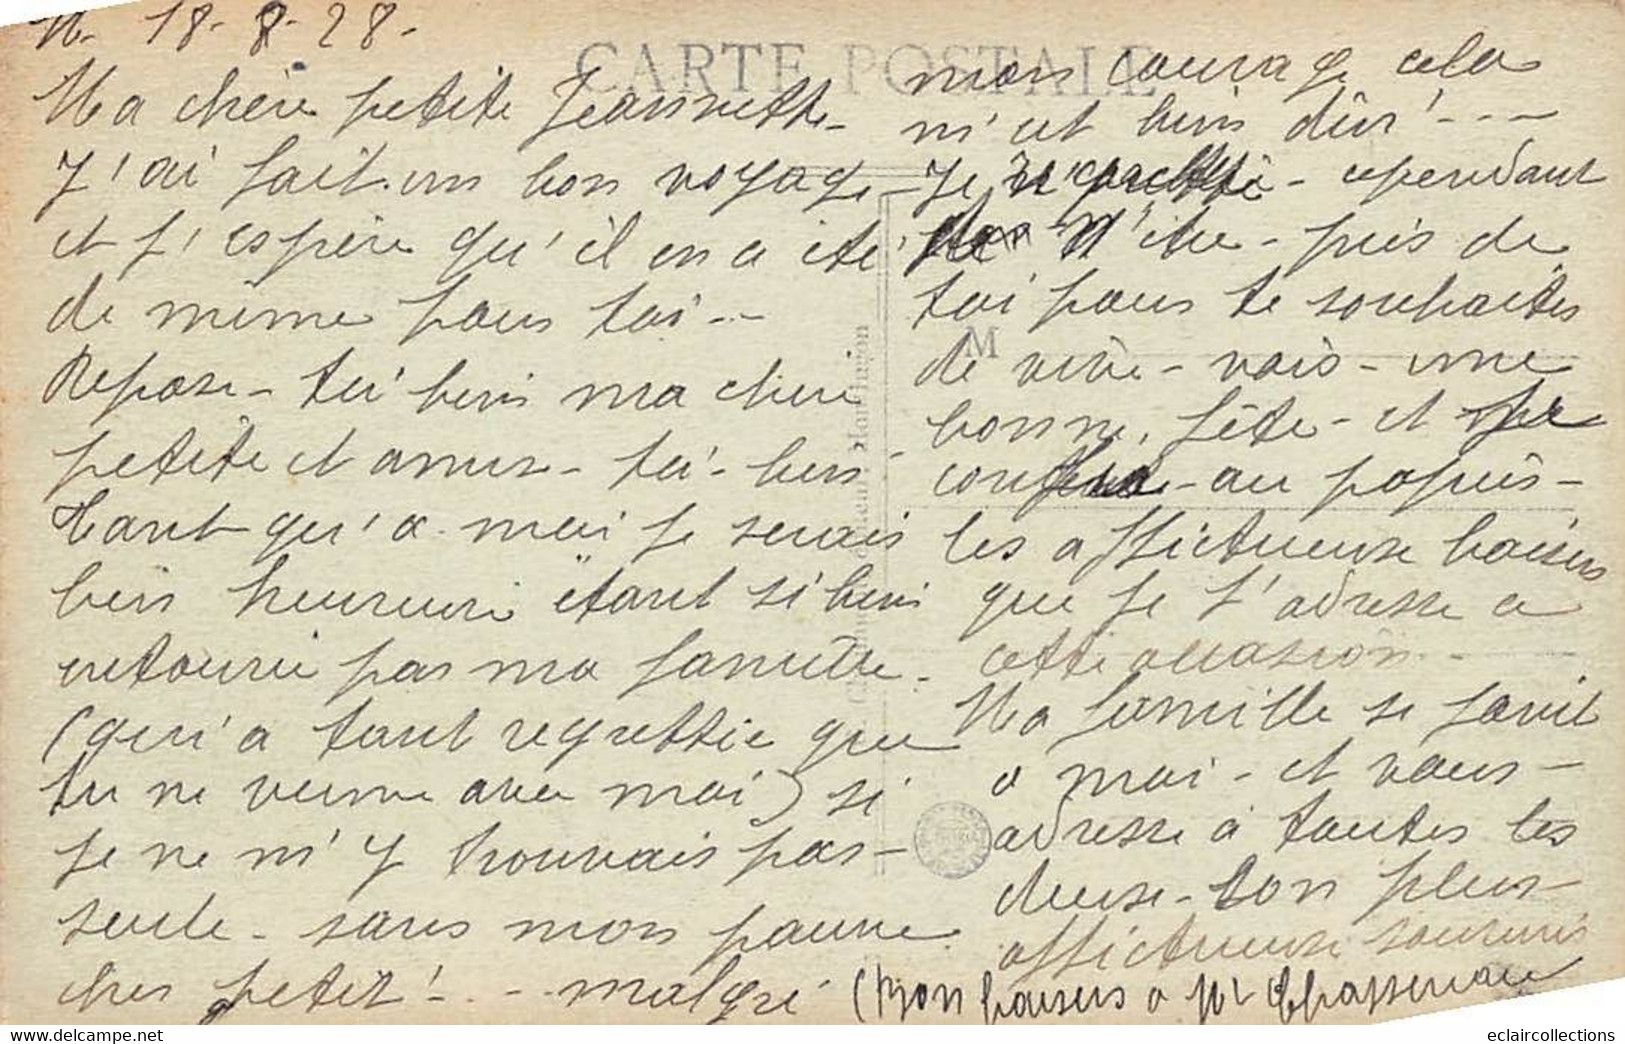 18-8-28-
CARTE POSTALE
Ma chère petite Jeannette-
J'ai fait un bon voyage-
et j'espère qu'il en a été
de même pour toi--
Repose-toi bien ma chère
petite et amuse-toi-bien-
Tant qu'a moi je serais
bien heureuse étant si bien
entourée par ma famille-
(qui a tant regrettée que
tu ne vienne avec moi) si
je ne m'y trouvais pas-
seule-sans mon pauvre
cher petit!--- malgré
mon courage cela
m'est bien dûr!---
Je regrette-cependant
d'être-près de
toi pour te souhaiter
de vive-voix-une
bonne fête-et
les affectueux baisers
que je t'adresse a
cette occasion--
Ma famille se joint
a moi-et vous-
adresse à toutes les
deux-ton plus-
affectueux souvenir
(Bon baisers a Mr Chassereau
M
eclaircollections